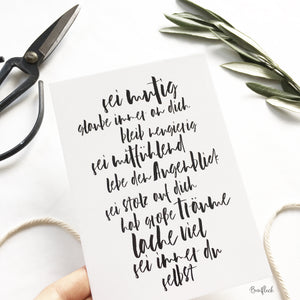 sei mutig
glaube immer an dich
bleib neugierig
sei mitfühlend
lebe den Augenblick
sei stolz auf dich
hab große träume
lache viel
sei immer du
selbst